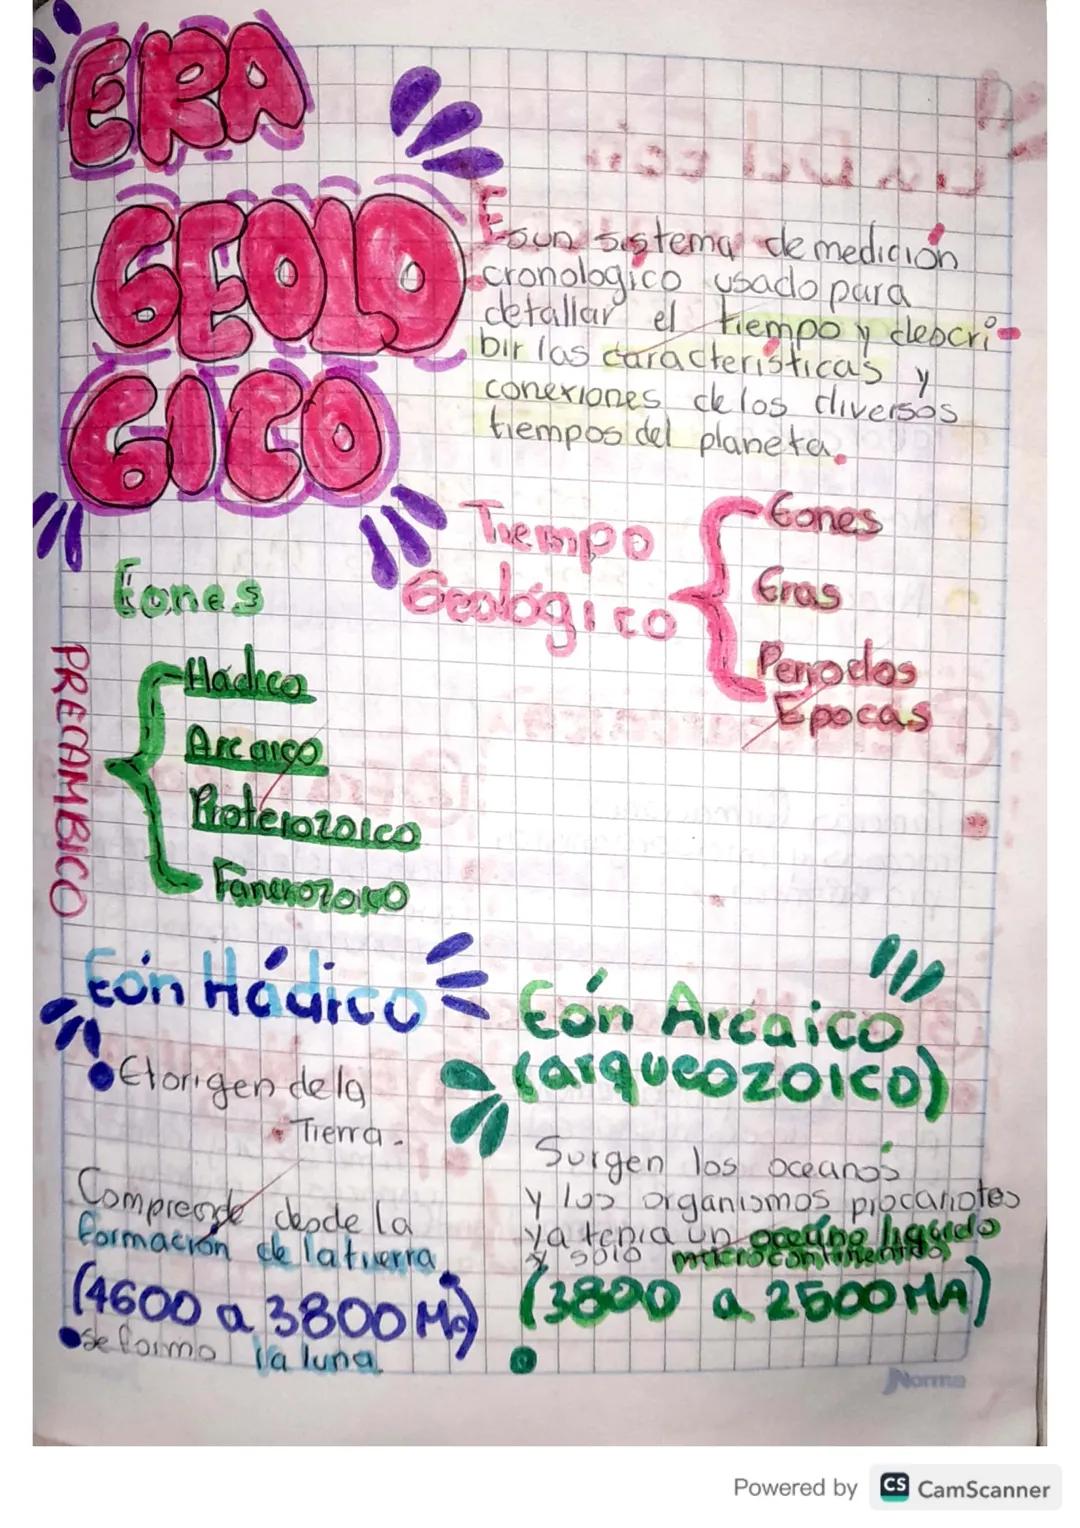 ERA
GEOLO
GICO
Es un sistema de medición
cronologico usado para
detallar el tiempo y descri-
bir las características y
conexiones de los diversos
tiempos del planeta.
Tiempo
Geológico
Eones
Eras
Periodos
Epocas
Eones
PRECAMBICO
Hádico
Arcaico
Proterozoico
Fanerozoico
Eón Hádico
El origen de la
Tierra.
Comprende desde la
formación de la tierra
(4600 a 3800 Ma)
se formo la luna.
Eón Arcaico
(arqueozoico)
Surgen los oceanos
y los organismos procariotes
ya tenia un oceano liquido
y solo microcontinentes
(3800 a 2500 MA)
Norma
Powered by CS CamScanner